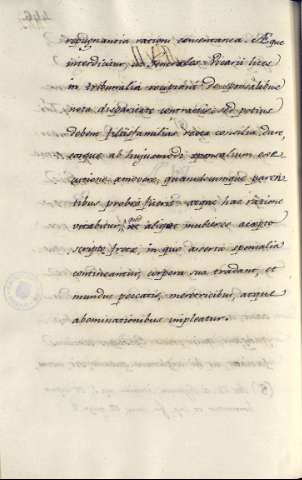 repugnantia rationi consentanea. Atque
interdicitur, ne Generales Vicarii lites
in tribunalia recipiant de sponsalibus
nota disparitate contractis; sed potius
debent filiisfamilias recta consilia dare,
eosque ab hujusmodi sponsalium exe-
cutione amovere, quandocumque paren-
tibus probra fuerit: atque hac ratione
vitabitur, quod aliquae mulieres accepto
scripto, frete, in quo asserta sponsalia
contineantur, corpora sua tradant, et
mundus peccatis, meretricibus, atque
abominationibus impleatur.